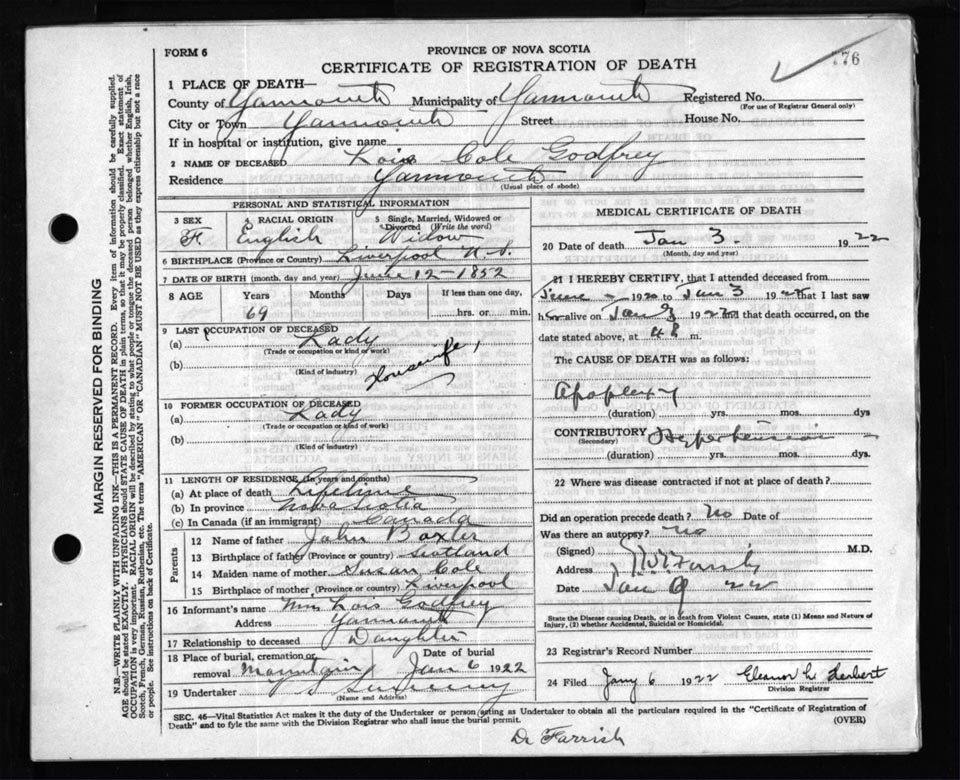 FORM 6
PROVINCE OF NOVA SCOTIA
CERTIFICATE OF REGISTRATION OF DEATH
776
1 PLACE OF DEATH—
County of Yarmouth Municipality of Yarmouth Registered No.
(For use of Registrar General only)
City or Town Yarmouth Street House No.
If in hospital or institution, give name
2 NAME OF DECEASED Lois Cole Godfrey
Residence Yarmouth
(Usual place of abode)
PERSONAL AND STATISTICAL INFORMATION
3 SEX 4 RACIAL ORIGIN 5 Single, Married, Widowed or Divorced (Write the word)
F. English Widow
6 BIRTHPLACE (Province or Country) Liverpool N.S.
7 DATE OF BIRTH (month, day and year) June 12-1852
8 AGE Years Months Days If less than one day,
69 hrs. or min.
9 LAST OCCUPATION OF DECEASED
(a) Lady
(Trade or occupation or kind or work)
(b) Housewife,
(Kind of industry)
10 FORMER OCCUPATION OF DECEASED
(a) Lady
(Trade or occupation or kind of work)
(b)
(Kind of industry)
11 LENGTH OF RESIDENCE (In years and months)
(a) At place of death Lifetime
(b) In province Nova Scotia
(c) In Canada (if an immigrant) Canada
Parents
12 Name of father John Baxter
13 Birthplace of father (Province or country) Scotland
14 Maiden name of mother Susan Cole
15 Birthplace of mother (Province or country) Liverpool
16 Informant's name Mrs Lois Godfrey
Address Yarmouth
17 Relationship to deceased Daughter
18 Place of burial, cremation or removal Mountain Date of burial Jan 6 1922
19 Undertaker Sweeny
(Name and Address)
MEDICAL CERTIFICATE OF DEATH
20 Date of death Jan 3. 1922
(Month, day and year)
21 I HEREBY CERTIFY, that I attended deceased from
June 1920 to Jan 3 1922 that I last saw
h alive on Jan 3 1922 that death occurred, on the
date stated above, at m.
The CAUSE OF DEATH was as follows:
Apoplexy
(duration) yrs. mos. dys.
CONTRIBUTORY Hypertension
(Secondary)
(duration) yrs. mos. dys.
22 Where was disease contracted if not at place of death?
Did an operation precede death? No Date of
Was there an autopsy? no
(Signed) M.D.
Address
Date Jan 9 22
State the Disease causing Death, or in death from Violent Causes, state (1) Means and Nature of
Injury, (2) whether Accidental, Suicidal or Homicidal.
23 Registrar's Record Number
24 Filed Jany 6 1922 Eleanor L. Herbert
Division Registrar
SEC. 46—Vital Statistics Act makes it the duty of the Undertaker or person acting as Undertaker to obtain all the particulars required in the "Certificate of Registration of
Death" and to fyle the same with the Division Registrar who shall issue the burial permit.
(OVER)
Dr Farrish
MARGIN RESERVED FOR BINDING
N.B.—WRITE PLAINLY WITH UNFADING INK—THIS IS A PERMANENT RECORD. Every item of information should be carefully supplied.
AGE should be stated EXACTLY. PHYSICIANS should STATE CAUSE OF DEATH in plain terms, so that it may be properly classified. Exact statement of
OCCUPATION is very important. RACIAL ORIGIN will be described by stating to what people or tongue the deceased person belonged whether English, Irish,
Scotch, French, German, Russian, Ruthenian, etc. The terms "AMERICAN" OR "CANADIAN" MUST NOT BE USED as they express citizenship but not a race
or people. See instructions on back of Certificate.